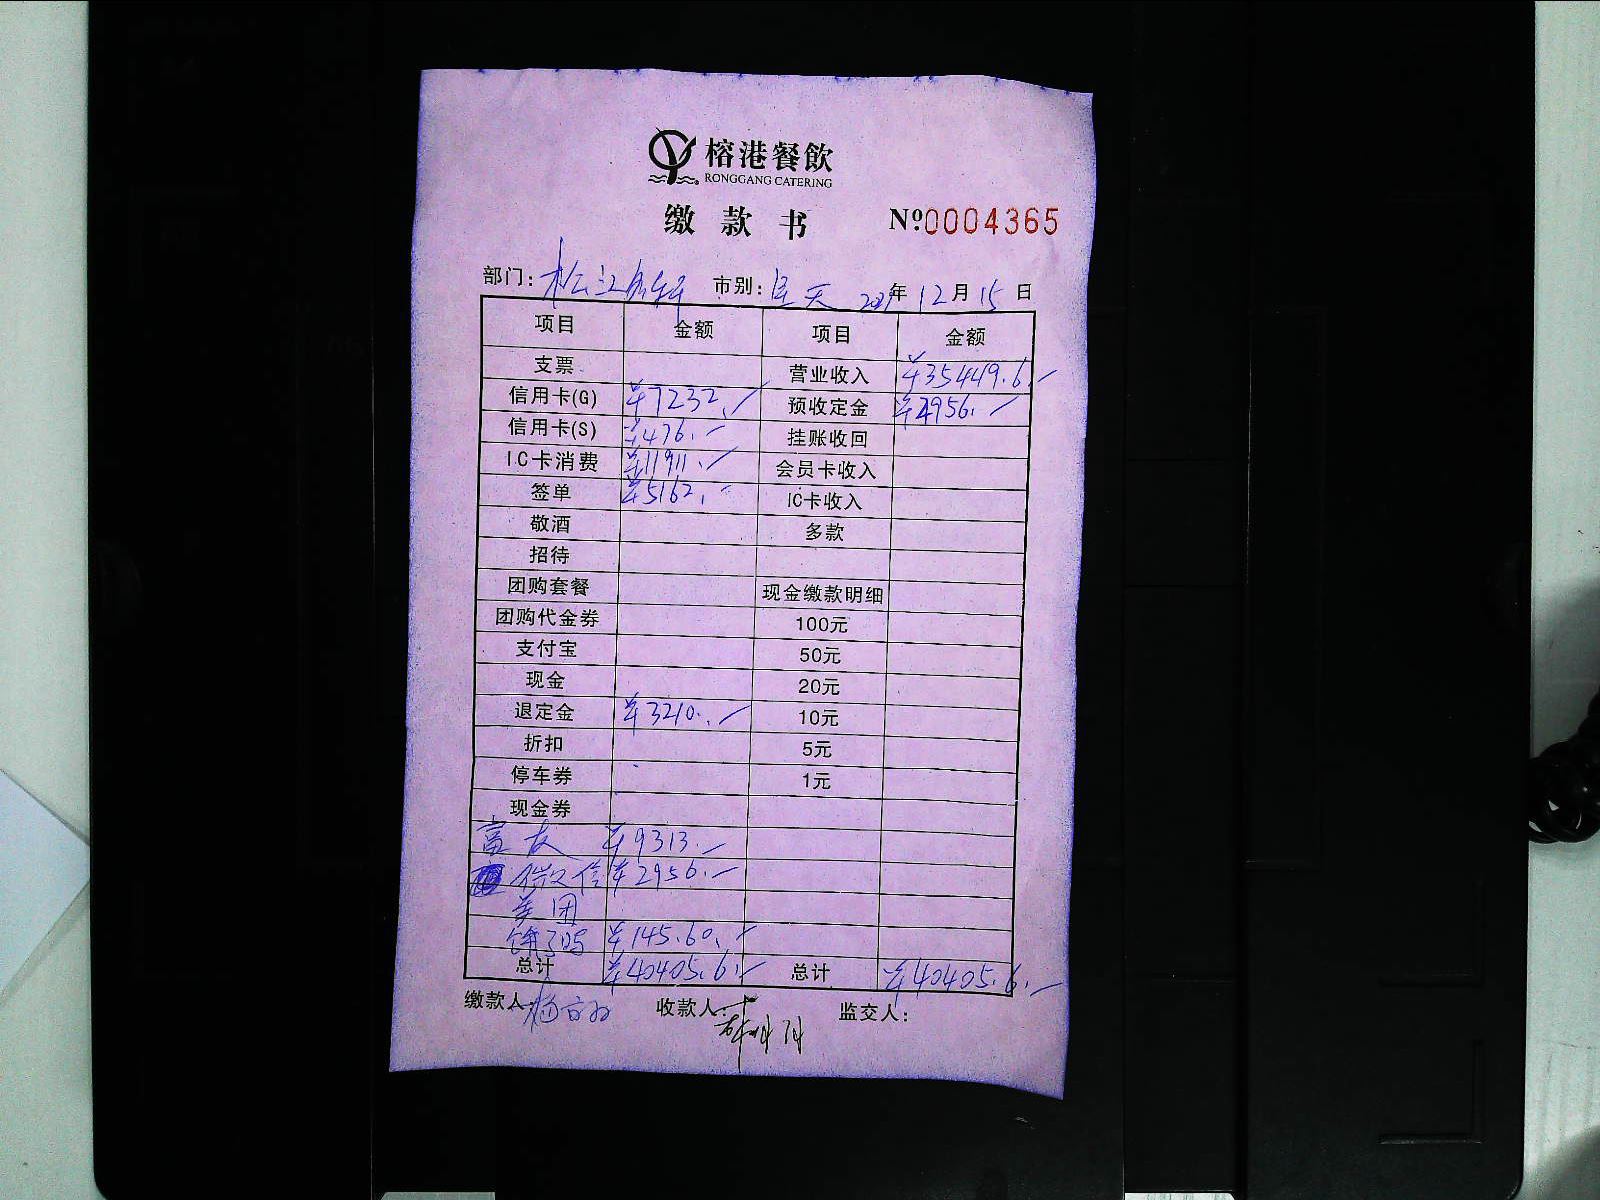 榕港餐飲
RONGGANG CATERING
缴款书 №0004365
部门: 松江 市别: 全天 2021年12月15日
项目 金额 项目 金额
支票 营业收入 ¥35449.6.
信用卡(G) ¥7232. 预收定金 ¥4956.
信用卡(S) ¥476. 挂账收回
IC卡消费 ¥11911. 会员卡收入
签单 ¥5162. IC卡收入
敬酒 多款
招待
团购套餐 现金缴款明细
团购代金券 100元
支付宝 50元
现金 20元
退定金 ¥3210. 10元
折扣 5元
停车券 1元
现金券
富友 ¥9313.
微信 ¥2956.
美团
饿了吗 ¥145.60.
总计 ¥40405.6. 总计 ¥40405.6.
缴款人: 收款人: 监交人: